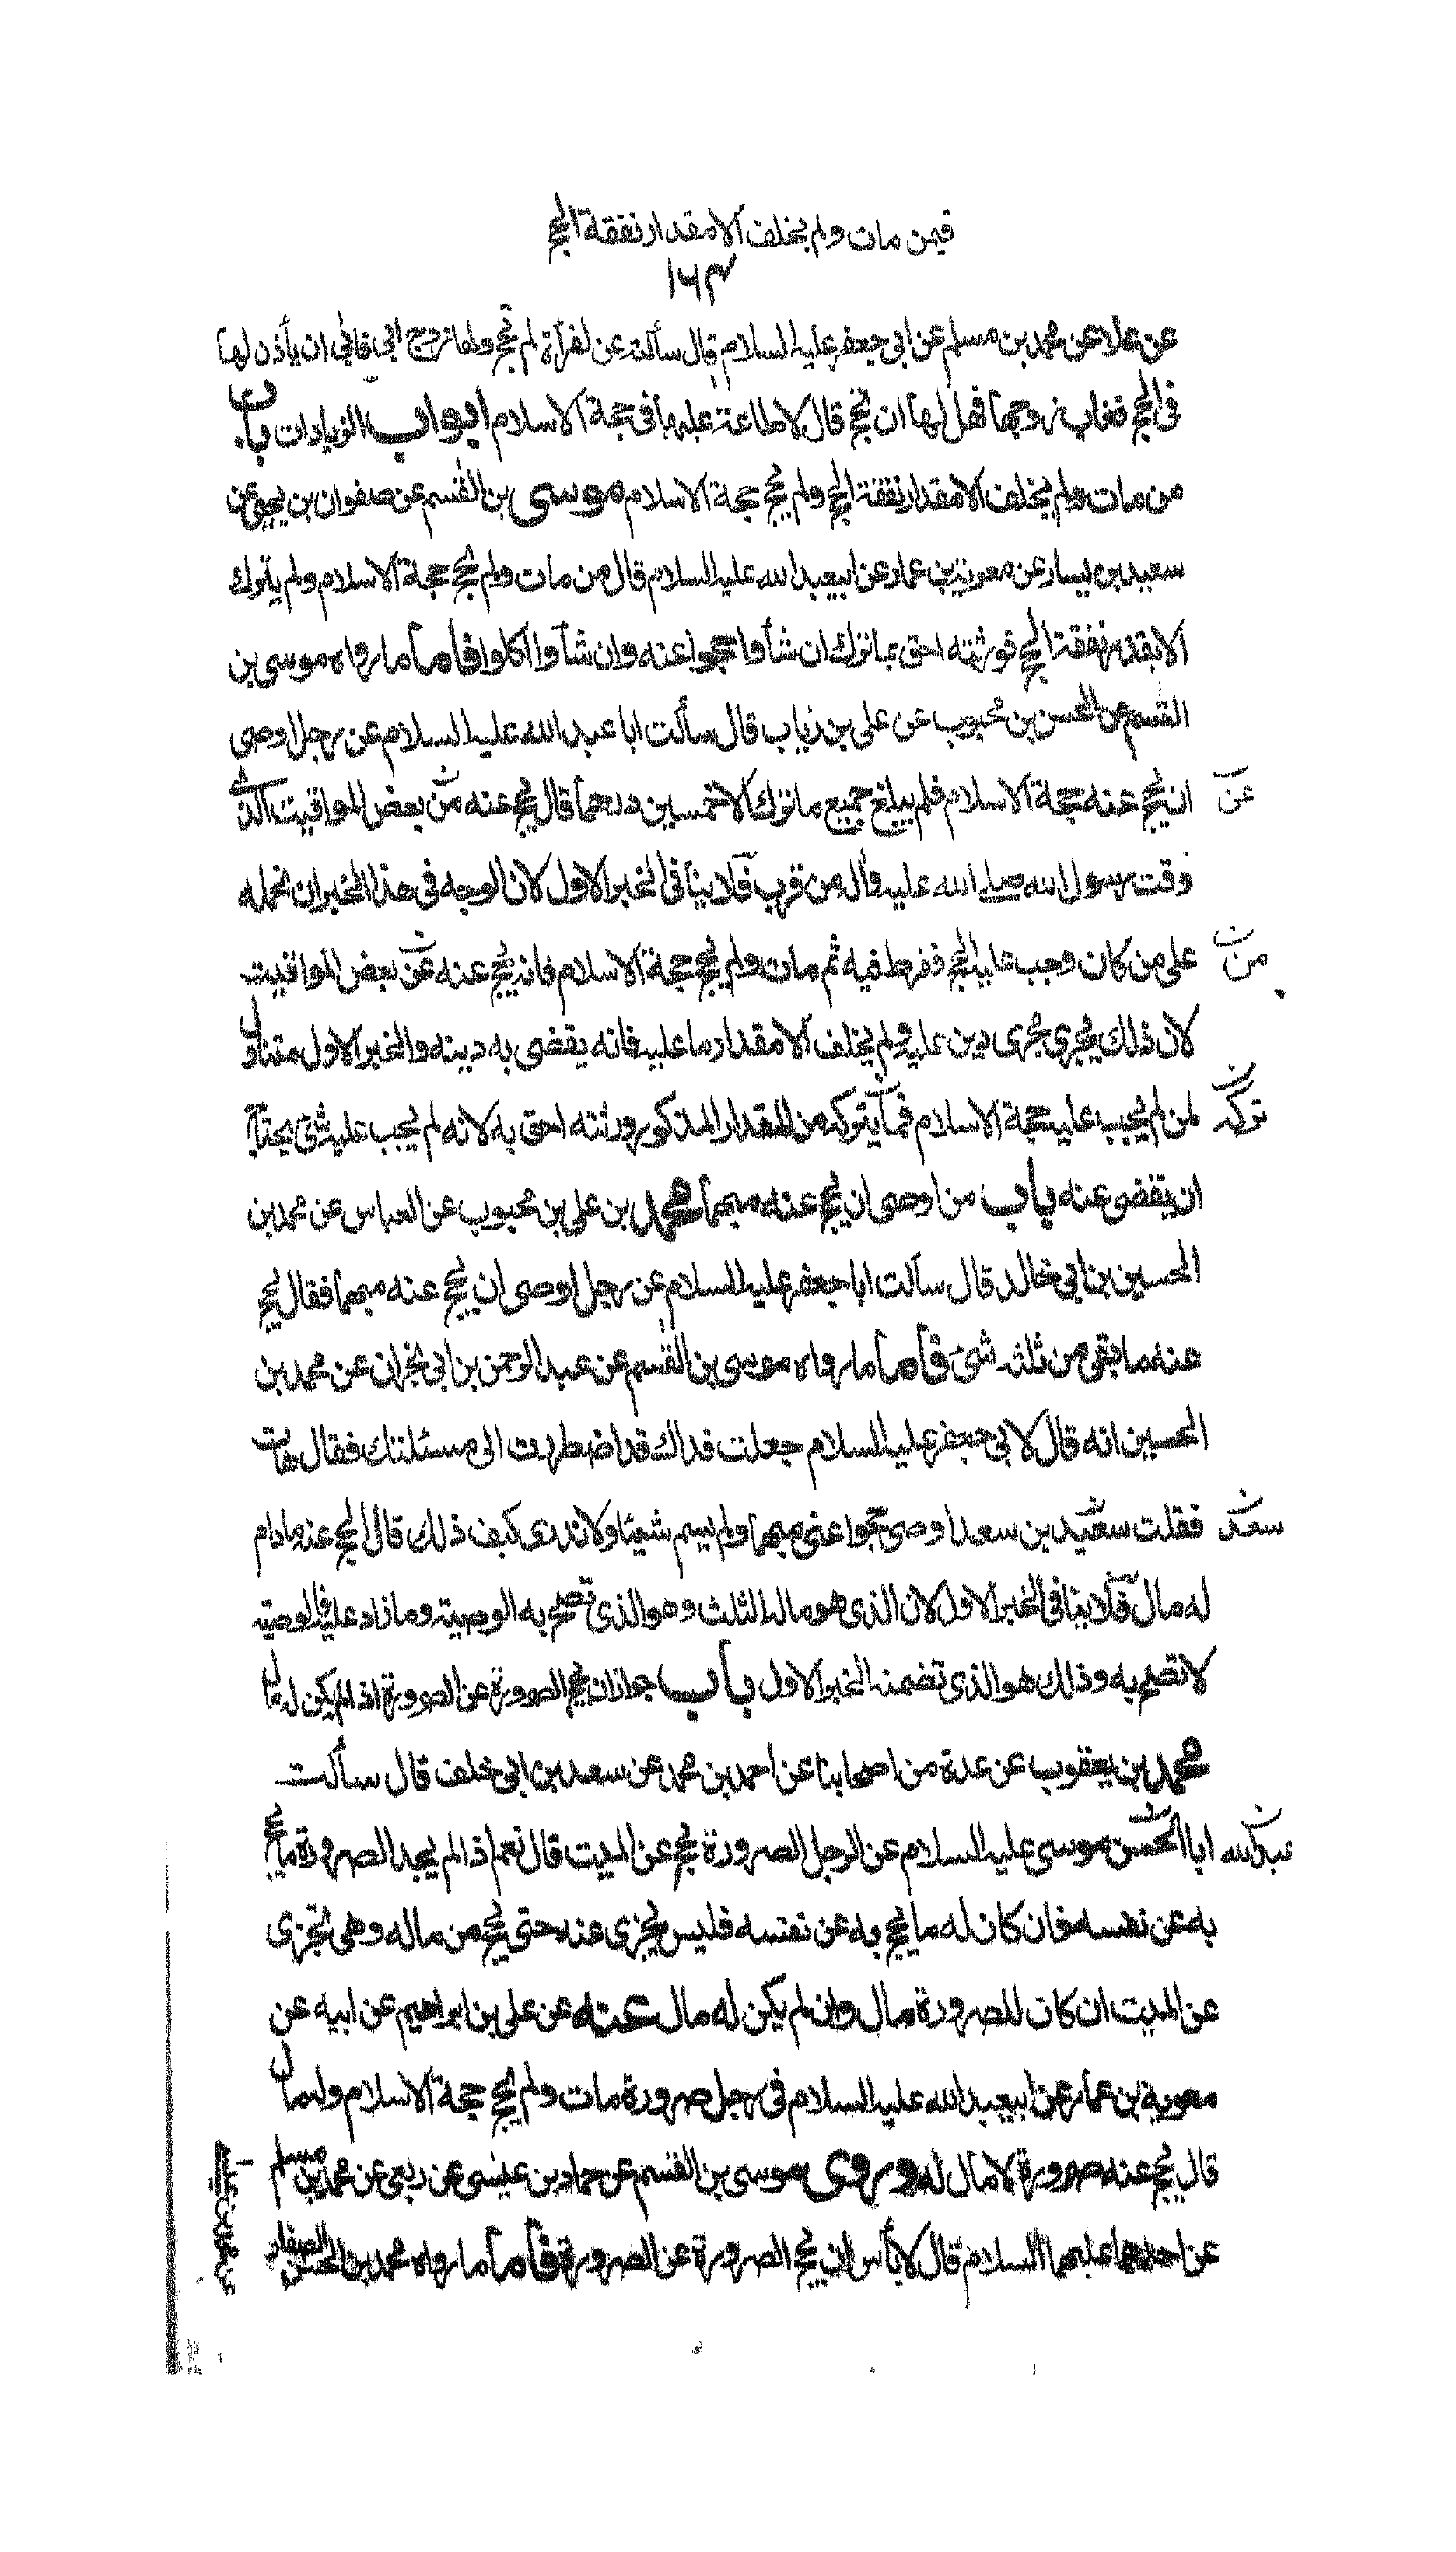 فيمن مات ولم يخلف الا مقدار نفقة الحج
١٦٣
عن علا عن محمد بن مسلم عن ابى جعفر عليه السلام قال سألته عن امرأة لم تحج ولها زوج ابى فابى ان يأذن لها
فى الحج فغاب زوجها فهل لها ان تحج قال لا طاعة عليها فى حجة الاسلام ابواب الزيادات باب
من مات ولم يخلف الا مقدار نفقة الحج ولم يحج حجة الاسلام موسى بن القسم عن صفوان بن يحيى عن
سعيد بن يسار عن معوية بن عمار عن ابيعبد الله عليه السلام قال من مات ولم يحج حجة الاسلام ولم يترك
الا بقدر نفقة الحج فورثته احق بما ترك ان شأوا حجوا عنه وان شأوا اكلوا فأما ما رواه موسى بن
القسم عن الحسن بن محبوب عن على بن رياب قال سألت ابا عبد الله عليه السلام عن رجل اوصى
ان يحج عنه حجة الاسلام فلم يبلغ جميع ما ترك الا خمسين درهما قال يحج عنه من بعض المواقيت الذى
عن
وقت رسول الله صلى الله عليه وآله من قرب فلا ينافى الخبر الاول لان الوجه فى هذا الخبر ان نحمله
على من كان وجب عليه الحج ففرط فيه ثم مات ولم يحج حجة الاسلام فانه يحج عنه عن بعض المواقيت
من
لان ذلك يجرى مجرى دين عليه ولم يخلف الا مقدار ما عليه فانه يقضى به دينه والخبر الاول متناول
لمن لم يجب عليه حجة الاسلام فما يتركه من المقدار المذكور ورثته احق به لانه لم يجب عليه شئ يحتاج
تركه
ان يقضى عنه باب من اوصى ان يحج عنه مبهما محمد بن على بن محبوب عن العباس عن محمد بن
الحسين بن ابى خالد قال سألت ابا جعفر عليه السلام عن رجل اوصى ان يحج عنه مبهما فقال يحج
عنه ما بقى من ثلثه شئ فأما ما رواه موسى بن القسم عن عبد الرحمن بن ابى نجران عن محمد بن
الحسين انه قال لابى جعفر عليه السلام جعلت فداك قد اضطررت الى مسئلتك فقال هات
فقلت سعيد بن سعد اوصى حجوا عنى مبهما ولم يسم شيئا ولا ندرى كيف ذلك قال يحج عنه مادام
سعد
له مال فلا ينافى الخبر الاول لان الذى هو ماله الثلث وهو الذى تصح به الوصية وما زاد عليه فالوصية
لا تصح به وذلك هو الذى تضمنه الخبر الاول باب جواز ان يحج الصرورة عن الصرورة اذا لم يكن له مال
محمد بن يعقوب عن عدة من اصحابنا عن احمد بن محمد عن سعد بن ابى خلف قال سألت
ابا الحسن موسى عليه السلام عن الرجل الصرورة يحج عن الميت قال نعم اذا لم يجد الصرورة ما يحج
عبد الله
به عن نفسه فان كان له ما يحج به عن نفسه فليس يجزى عنه حتى يحج من ماله وهى تجزى
عن الميت ان كان للصرورة مال وان لم يكن له مال عنه عن على بن ابراهيم عن ابيه عن
معوية بن عمار عن ابيعبد الله عليه السلام فى رجل صرورة مات ولم يحج حجة الاسلام وله مال
قال يحج عنه صرورة لا مال له وروى موسى بن القسم عن حماد بن عيسى عن ربعى عن محمد بن مسلم
عن احدهما عليهما السلام قال لا بأس ان يحج الصرورة عن الصرورة فأما ما رواه محمد بن الحسن الصفار